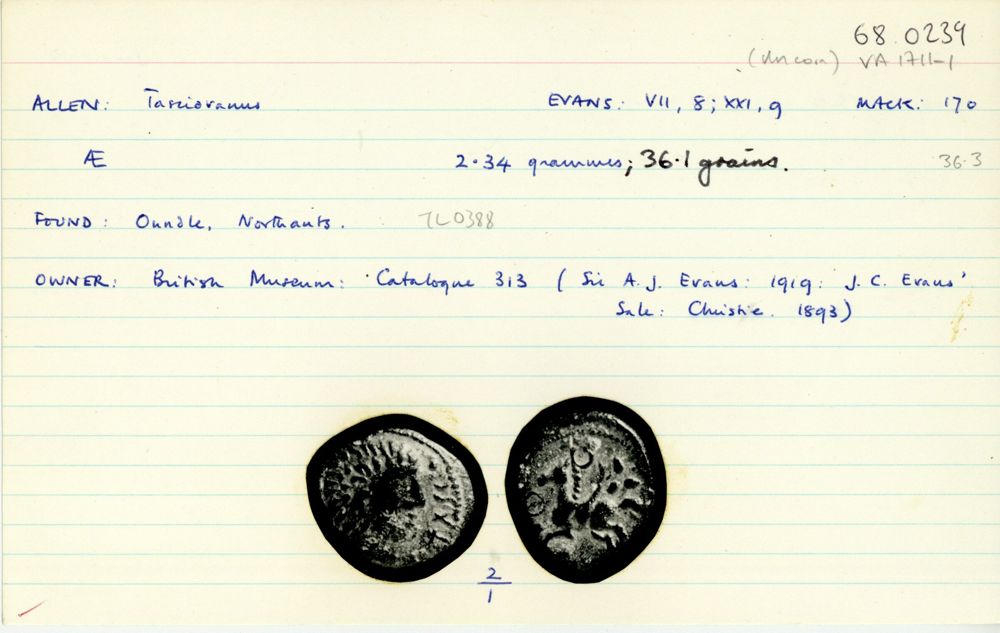 68.0239
(Vncoin) VA 1711-1
ALLEN: Tasciovanus EVANS: VII, 8; XXI, 9 MACK: 170
Æ 2.34 grammes; 36.1 grains. 36.3
FOUND: Oundle, Northants. TL0388
OWNER: British Museum: Catalogue 313 (Sir A.J. Evans: 1919: J.C. Evans'
Sale: Christie. 1893)
2
1